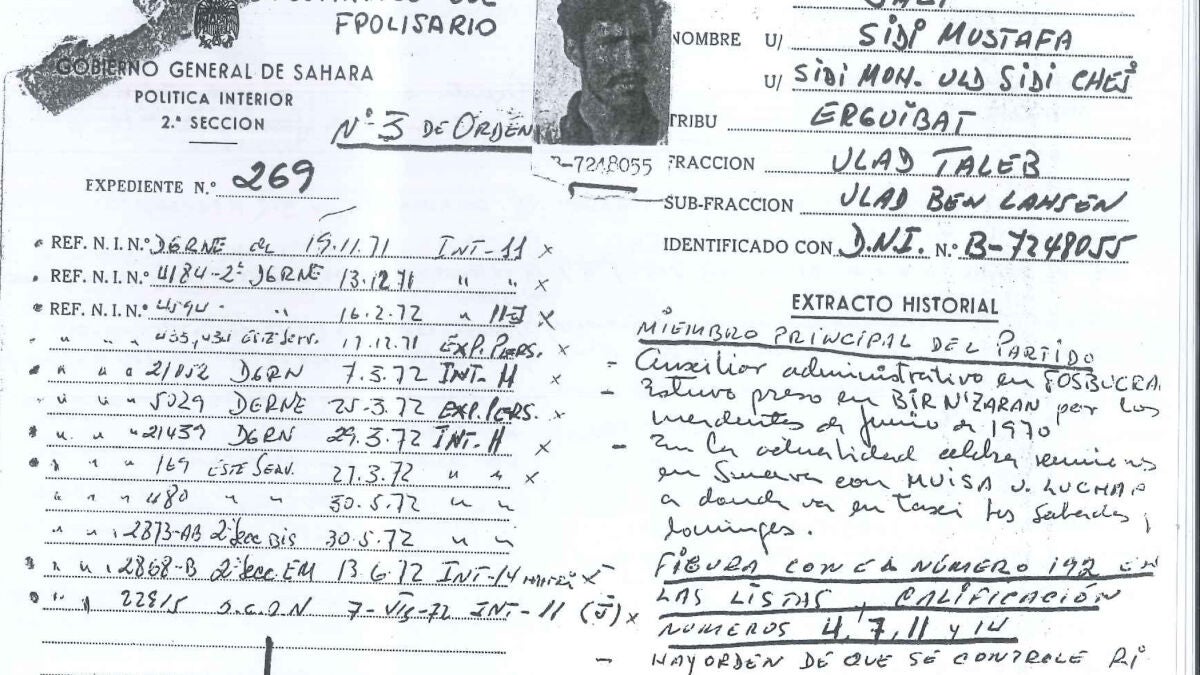 FPOLISARIO
GOBIERNO GENERAL DE SAHARA
POLITICA INTERIOR
2.ª SECCION
Nº 3 DE ORDEN
EXPEDIENTE N.º 269
REF. N. I. N.º DGRNE de 19.11.71 INT-11 x
REF. N. I. N.º 4184-2ª DGRNE 13.12.71 " " x
REF. N. I. N.º 4594 " 16.2.72 " II-J x
" " " 433, 431 ESTE SERV. 17.12.71 EXP. PERS. x
" " " 21052 DGRN 7.3.72 INT-H x
" " " 5029 DGRNE 25-3.72 EXP. PERS. x
" " " 21439 DGRN 29.3.72 INT-H x
" " " 169 ESTE SERV. 27.3.72 " " x
" " " 480 " " 30.5.72 " "
" " 2873-AB 2ª Secc Bis 30.5.72 " "
" " 2868-B 2ª Secc. EM 13.6.72 INT-14 x
" " 22815 7-VII-72 INT-11 (J) x
B-7248055
NOMBRE U/ SIDI MUSTAFA
U/ SIDI MOH. ULD SIDI CHEJ
TRIBU ERGUIBAT
FRACCION ULAD TALEB
SUB-FRACCION ULAD BEN LAHSEN
IDENTIFICADO CON D.N.I. N.º B-7248055
EXTRACTO HISTORIAL
MIEMBRO PRINCIPAL DEL PARTIDO
- Auxiliar administrativo en FOSBUCRA
- Estuvo preso en BIR N'ZARAN por los
incidentes de junio de 1970
- En la actualidad celebra reuniones
en Smara con MUISA U. LUCHAA
a donde va en taxi los sabados y
domingos.
FIGURA CON EL NÚMERO 192 EN
LAS LISTAS Y CALIFICACIÓN
NÚMEROS 4, 7, 11 y 14
- HAY ORDEN DE QUE SE CONTROLE